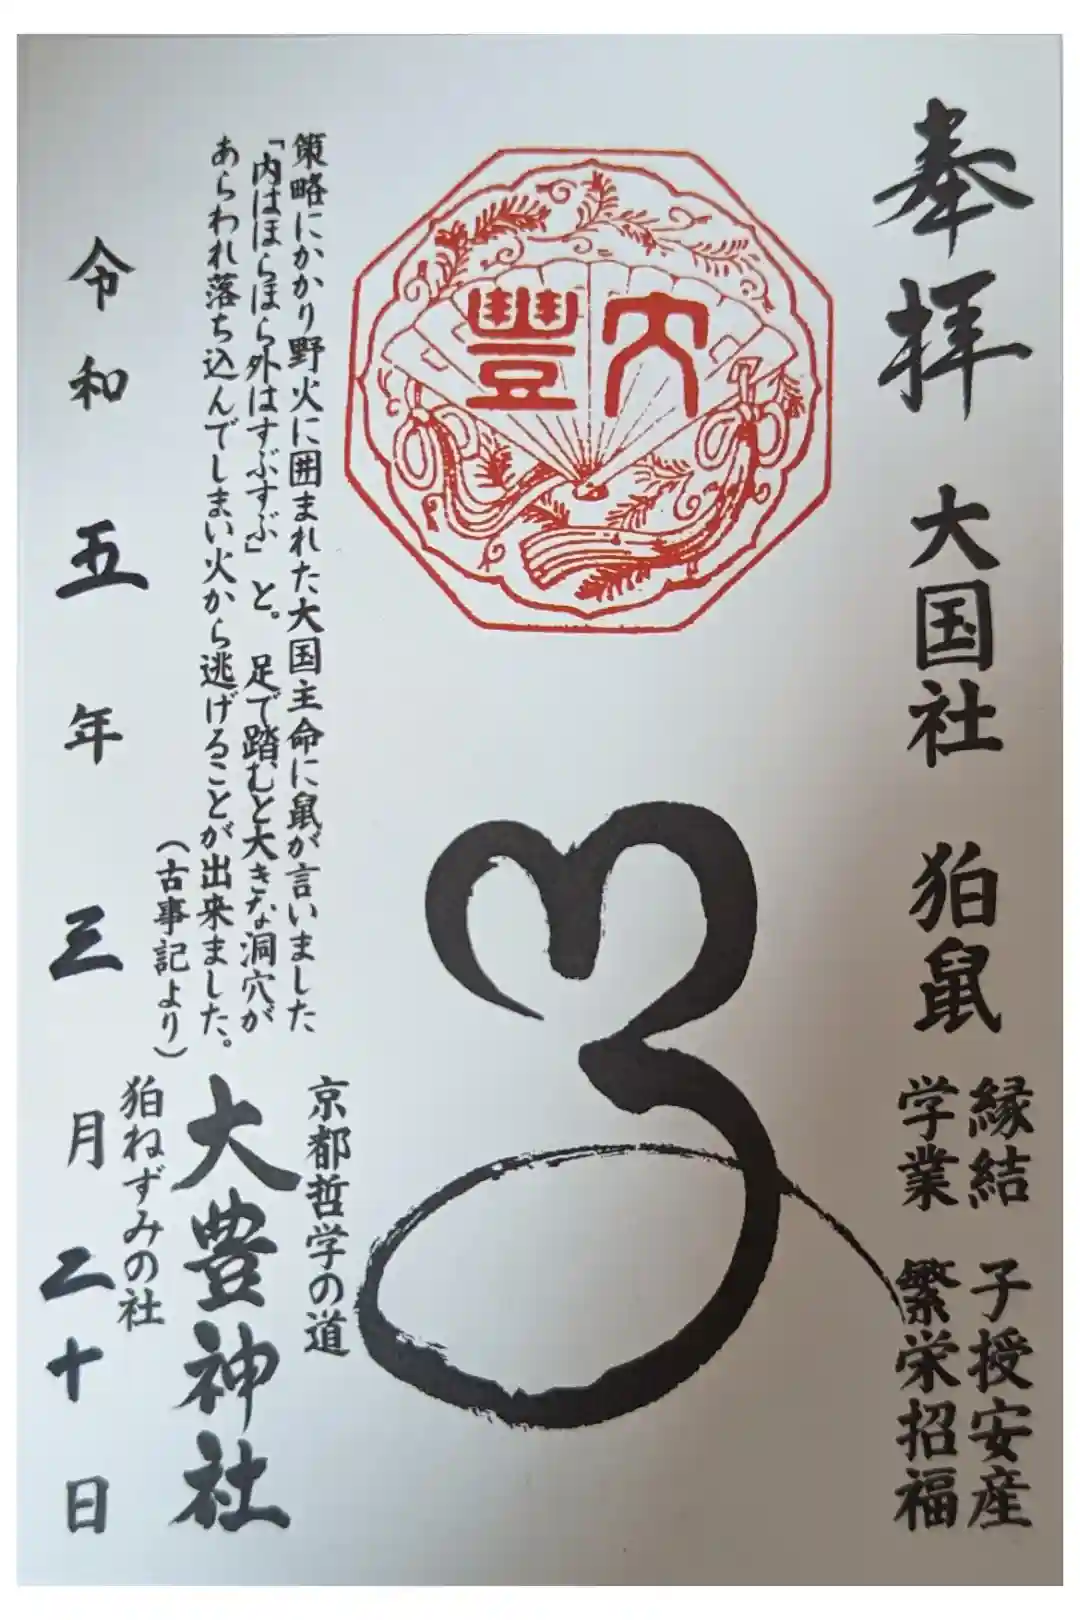 奉拝 大国社 狛鼠
縁結 子授安産
学業 繁栄招福
大豊
策略にかかり野火に囲まれた大国主命に鼠が言いました
「内はほらほら外はすぶすぶ」と。 足で踏むと大きな洞穴が
あらわれ落ち込んでしまい火から逃げることが出来ました。
(古事記より)
京都哲学の道
大豊神社
狛ねずみの社
令和五年三月二十日